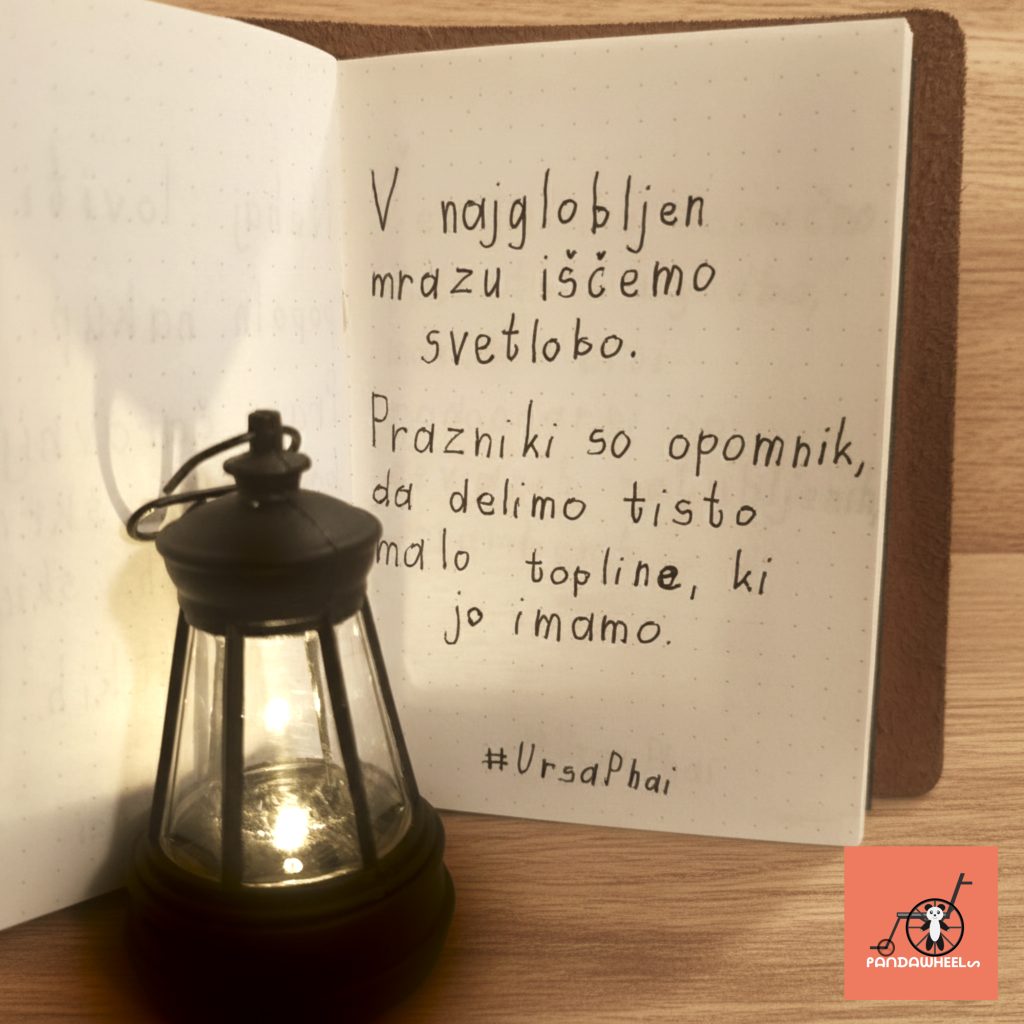 V najglobljen
mrazu iščemo
svetlobo.
Prazniki so opomnik,
da delimo tisto
malo topline, ki
jo imamo.
#UrsaPhai
PANDAWHEELS